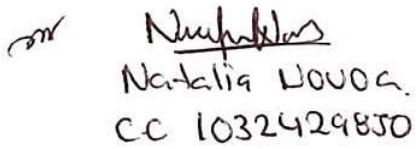 Natalia Novoa.
CC 1032429850